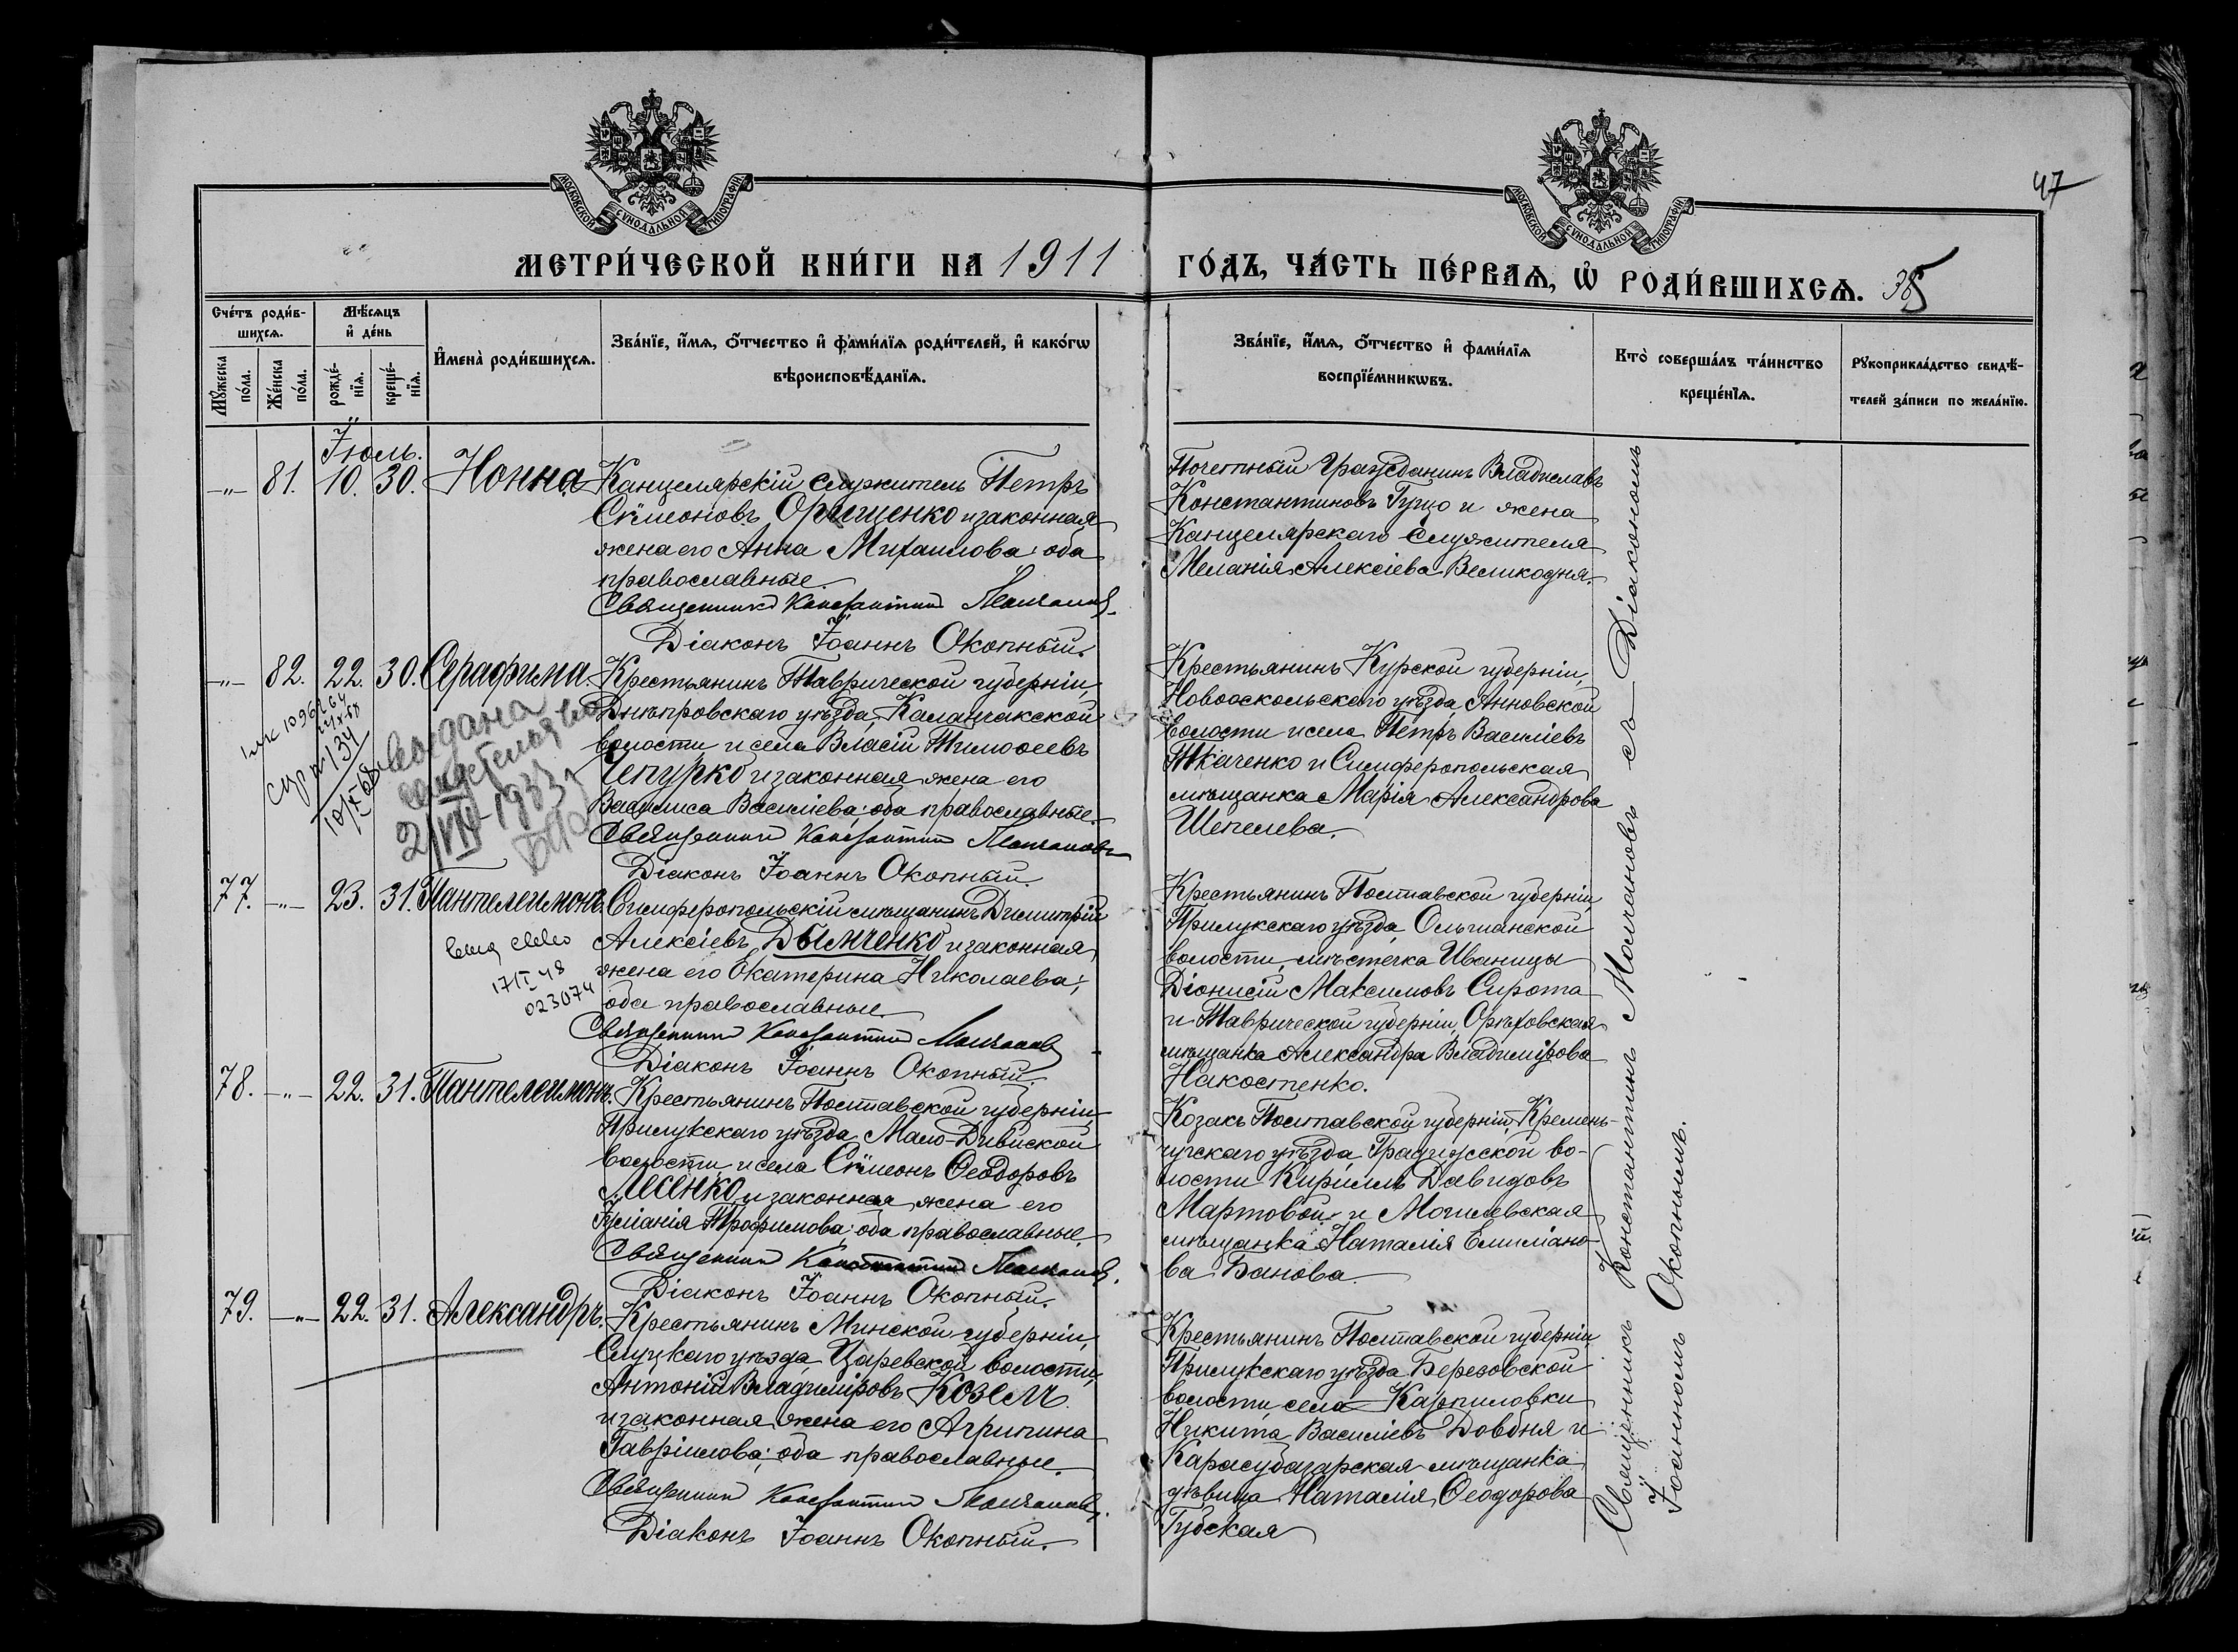 МОСКОВСКОЙ СѴНОДАЛЬНОЙ ТИПОГРАФІИ
МОСКОВСКОЙ СѴНОДАЛЬНОЙ ТИПОГРАФІИ
47
МЕТРИ́ЧЕСКОЙ КНИ́ГИ НА 1911
ГО́ДЪ, ЧА́СТЬ ПЕ́РВАѦ, Ѡ҆ РОДИ́ВШИХСѦ. 35
Сче́тъ роди́в-
шихсѧ.
Мꙋ́жеска
по́ла.
Же́нска
по́ла.
Мѣ́сѧцъ
и҆ де́нь
рожде́-
нїѧ.
креще́-
нїѧ.
И҆мена̀ роди́вшихсѧ.
Зва́нїе, и҆́мѧ, ѻ҆́тчество и҆ фами́лїѧ роди́телей, и҆ како́гѡ
вѣроисповѣ́данїѧ.
Зва́нїе, и҆́мѧ, ѻ҆́тчество и҆ фами́лїѧ
воспрїе́мникѡвъ.
Кто̀ соверша́лъ та́инство
креще́нїѧ.
Рꙋкоприкла́дство свидѣ́-
телей за́писи по жела́нїю.
Іюль.
-"- 81. 10. 30. Нонна
Канцелярскій служитель Петръ
Сѵмеоновъ Орищенко и законная
жена его Анна Михаилова: оба
православные
Священникъ Константинъ Молчановъ.
Діаконъ Іоаннъ Окопный.
Почетный Гражданинъ Владиславъ
Константиновъ Гуцо и жена
Канцелярскаго служителя
Меланія Алексіева Великодня.
-"- 82. 22. 30. Серафима.
Крестьянинъ Таврической губерніи,
Днѣпровскаго уѣзда, Каланчакской
волости и села Власій Тимоѳеевъ
Чепурко и законная жена его
Васулиса Василіева; оба православные.
Священникъ Константинъ Молчановъ
Діаконъ Іоаннъ Окопный.
выдана
2/VIII-1933 г
10/X 68
Крестьянинъ Курской губерніи,
Новооскольскаго уѣзда Анновской
волости и села Петръ Василіевъ
Ткаченко и Симферопольская
мѣщанка Марія Александрова
Шепелева.
77. -"- 23. 31. Пантелеимонъ.
Симферопольскій мѣщанинъ Димитрій
Алексіевъ Дымченко и законная
жена его Екатерина Николаева;
оба православные.
Священникъ Константинъ Молчановъ
Діаконъ Іоаннъ Окопный.
023074
Крестьянинъ Полтавской губерніи,
Прилукскаго уѣзда, Ольшанской
волости, мѣстечка Иваницы
Діонисій Максимовъ Сирота
и Таврической губерніи, Орѣховская
мѣщанка Александра Владимірова
Накостенко.
78. -"- 22. 31. Пантелеимонъ.
Крестьянинъ Полтавской губерніи,
Прилукскаго уѣзда, Мало-Дивиской
волости и села Сѵмеонъ Ѳеодоровъ
Лесенко и законная жена его
Іуліанія Трофимова; оба православные.
Священникъ Константинъ Молчановъ.
Діаконъ Іоаннъ Окопный.
Козакъ Полтавской губерніи, Кремен-
чугскаго уѣзда, Градижской во-
лости Кириллъ Давидовъ
Мартовой и Могилевская
мѣщанка Наталія Емиліано-
ва Банова.
79. -"- 22. 31. Александръ.
Крестьянинъ Минской губерніи,
Слуцкаго уѣзда, Царевской волости,
Антоній Владиміровъ Козелъ
и законная жена его Агрипина
Гавріилова; оба православные.
Священникъ Константинъ Молчановъ.
Діаконъ Іоаннъ Окопный.
Крестьянинъ Полтавской губерніи,
Прилукскаго уѣзда Березовской
волости, села Карпиловки
Никита Василіевъ Довбня и
Карасубазарская мѣщанка
дѣвица Наталія Ѳеодорова
Губская
Священникъ Константинъ Молчановъ съ Діакономъ
Іоанномъ Окопнымъ.